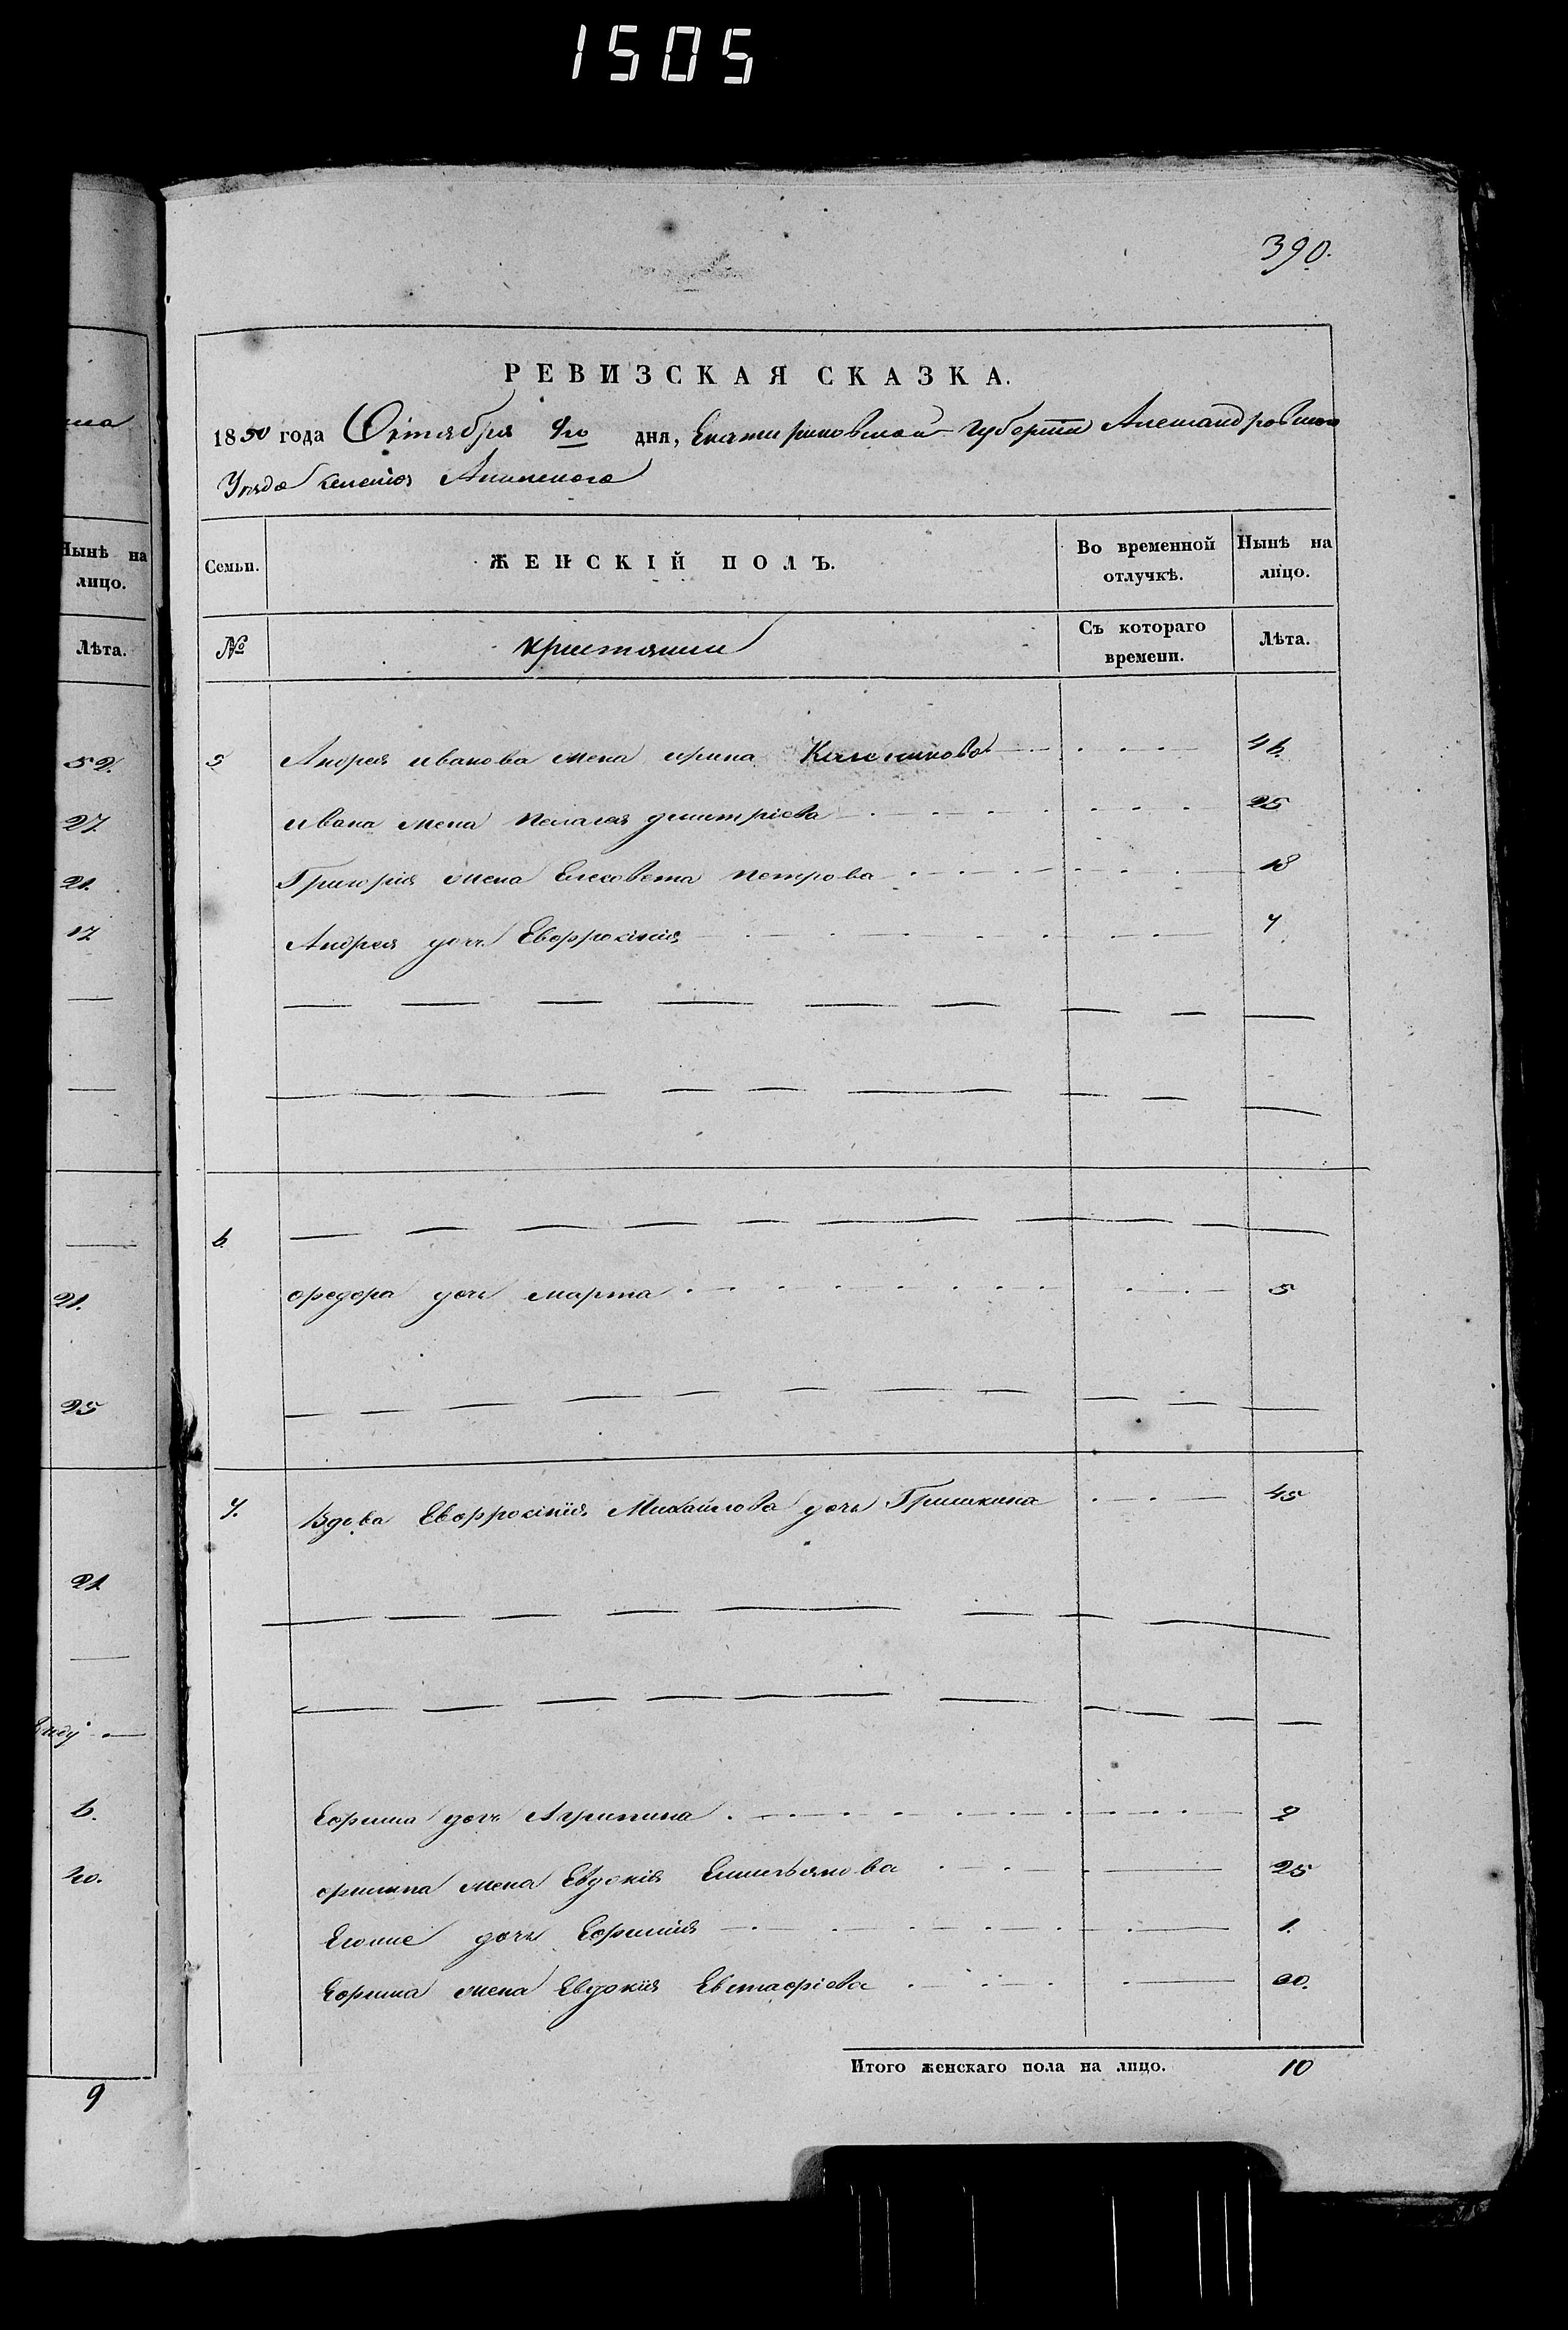 1505
на
Нынѣ на
лицо.
Лѣта.
52.
27
21.
17
21.
25
21
6.
40.
9
390.
РЕВИЗСКАЯ СКАЗКА.
1850 года Октября 9го дня, Екатериновской Губернии Александровского
Уезда селения
Семьи. ЖЕНСКІЙ ПОЛЪ. Во временной отлучкѣ. Нынѣ на лицо.
№ Съ котораго времени. Лѣта.
5 Андрея иванова жена ирина 46
ивана жена Пелагея дмитрieва 25
Григория жена Елесовета петрова 18
Андрея дочь Евфросиния 7
6.
федора дочь марта 5
7. Вдова Евфросиния Михайлова дочь Гришкина 45
Ефима дочь Агрипина 2
филипа жена Евдокия Емильянова 25
Егоже дочь Ефимия 1.
Ефима жена Евдокия Евстафieва 20.
Итого женскаго пола на лицо. 10